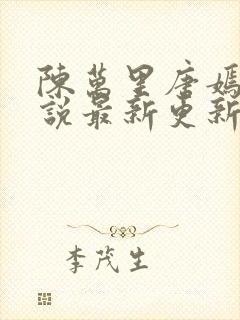 陳萬里唐嫣
說最新更新
李茂生